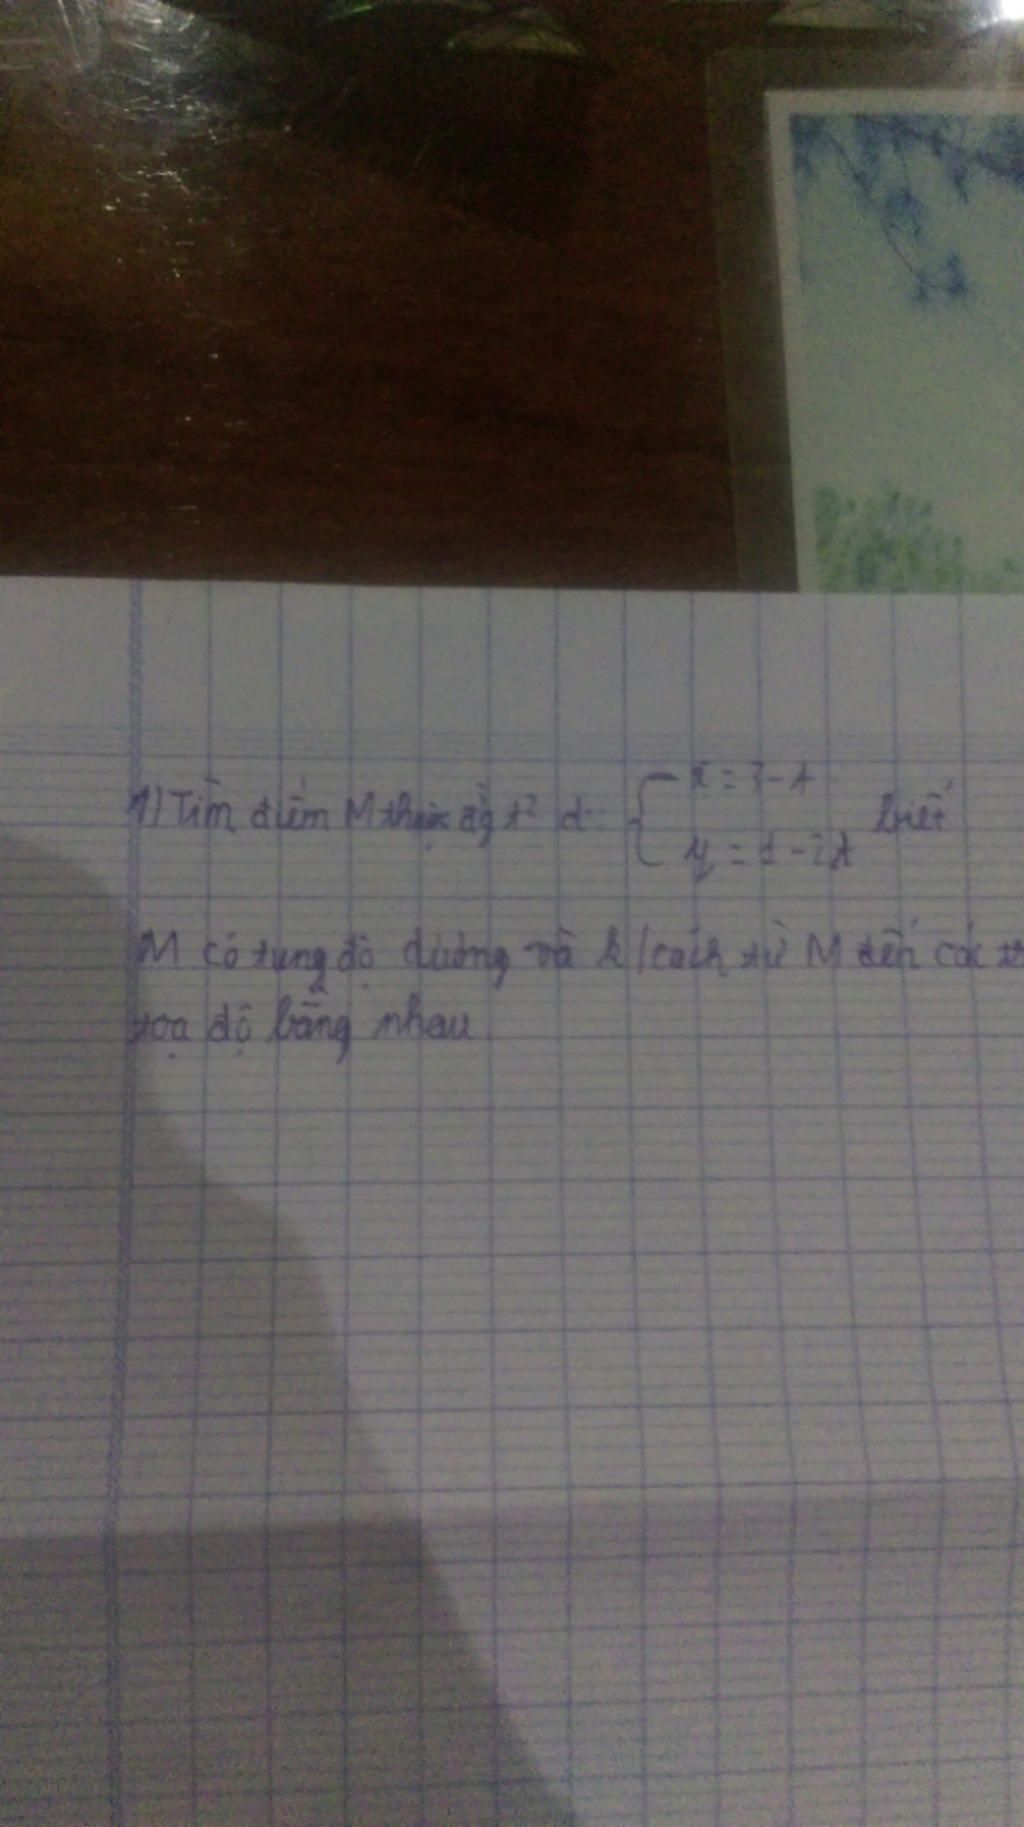 1) Tìm điểm M thuộc đg t² d: { x = 3 - t
y = 1 - 2t biết
M có tung độ dương và k/cách từ M đến các
tọa độ bằng nhau